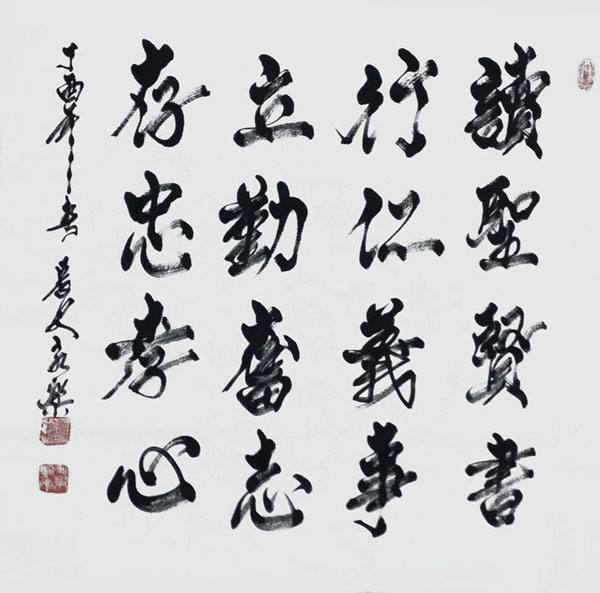 讀聖賢書
行仁義事
立勤奮志
存忠孝心
丁酉年
永樂